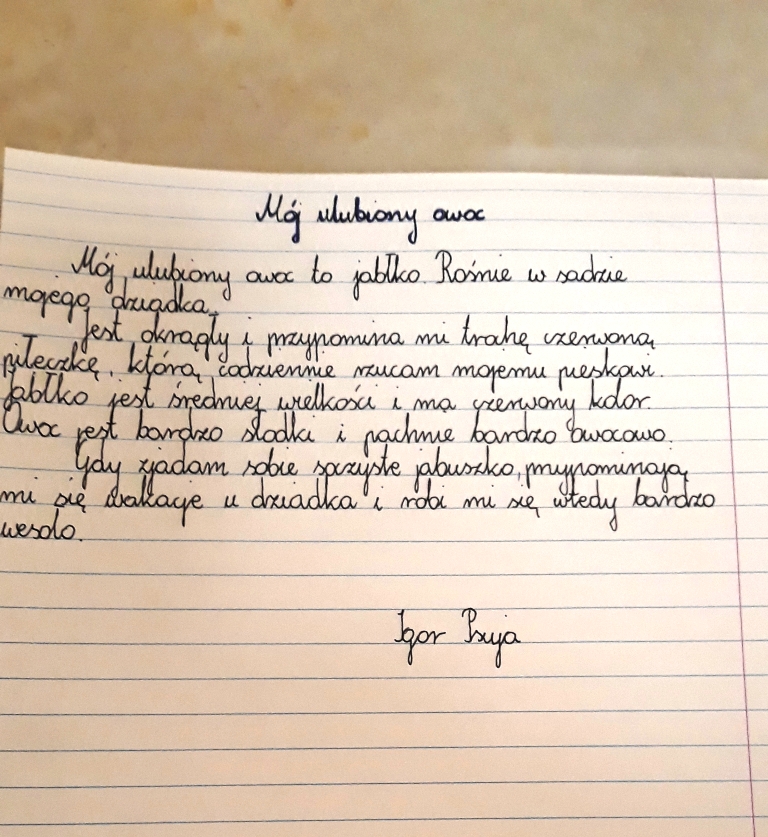 Mój ulubiony owoc
Mój ulubiony owoc to jabłko. Rośnie w sadzie
mojego dziadka.
Jest okrągły i przypomina mi trahę czerwoną
piłeczkę, którą codziennie rzucam mojemu pieskowi.
Jabłko jest średniej wielkości i ma czerwony kolor.
Owoc jest bardzo słodki i pachnie bardzo owocowo.
Gdy zjadam sobie soczyste jabuszko, przypominają
mi się wakacje u dziadka i robi mi się wtedy bardzo
wesoło.
Igor